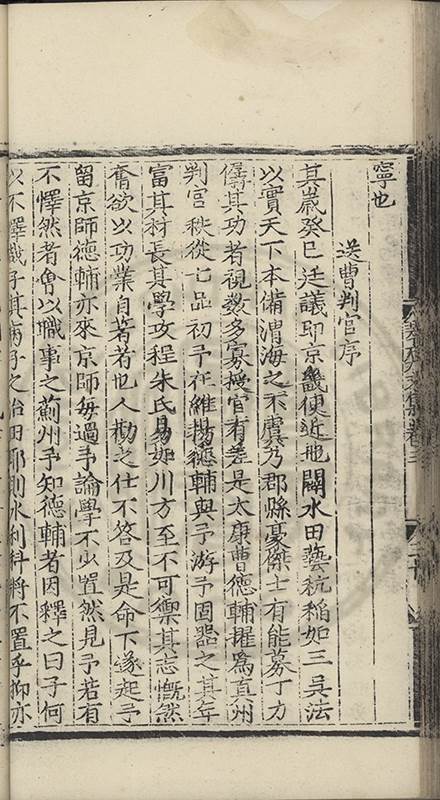 寧也
送曹判官序
其歲癸巳廷議即京畿便近地闢水田藝秔稻如三吳法
以實天下本備漕海之不虞乃郡縣豪傑士有能募丁力
儔其功者視数多寡授官有差是太康曹德輔擢爲直州
判官秩從七品初予在維揚德輔與予游予固器之其年
富其材長其學攻程朱氏易如川方至不可禦其志慨然
奮欲以功業自著者也人勸之仕不答及是命下遂起予
留京師德輔亦來京師每過予論學不少置然見予若有
不懌然者會以職事之薊州予知德輔者因釋之曰子何
以不懌哉子其病子之治田耶則水利科將不置乎抑亦